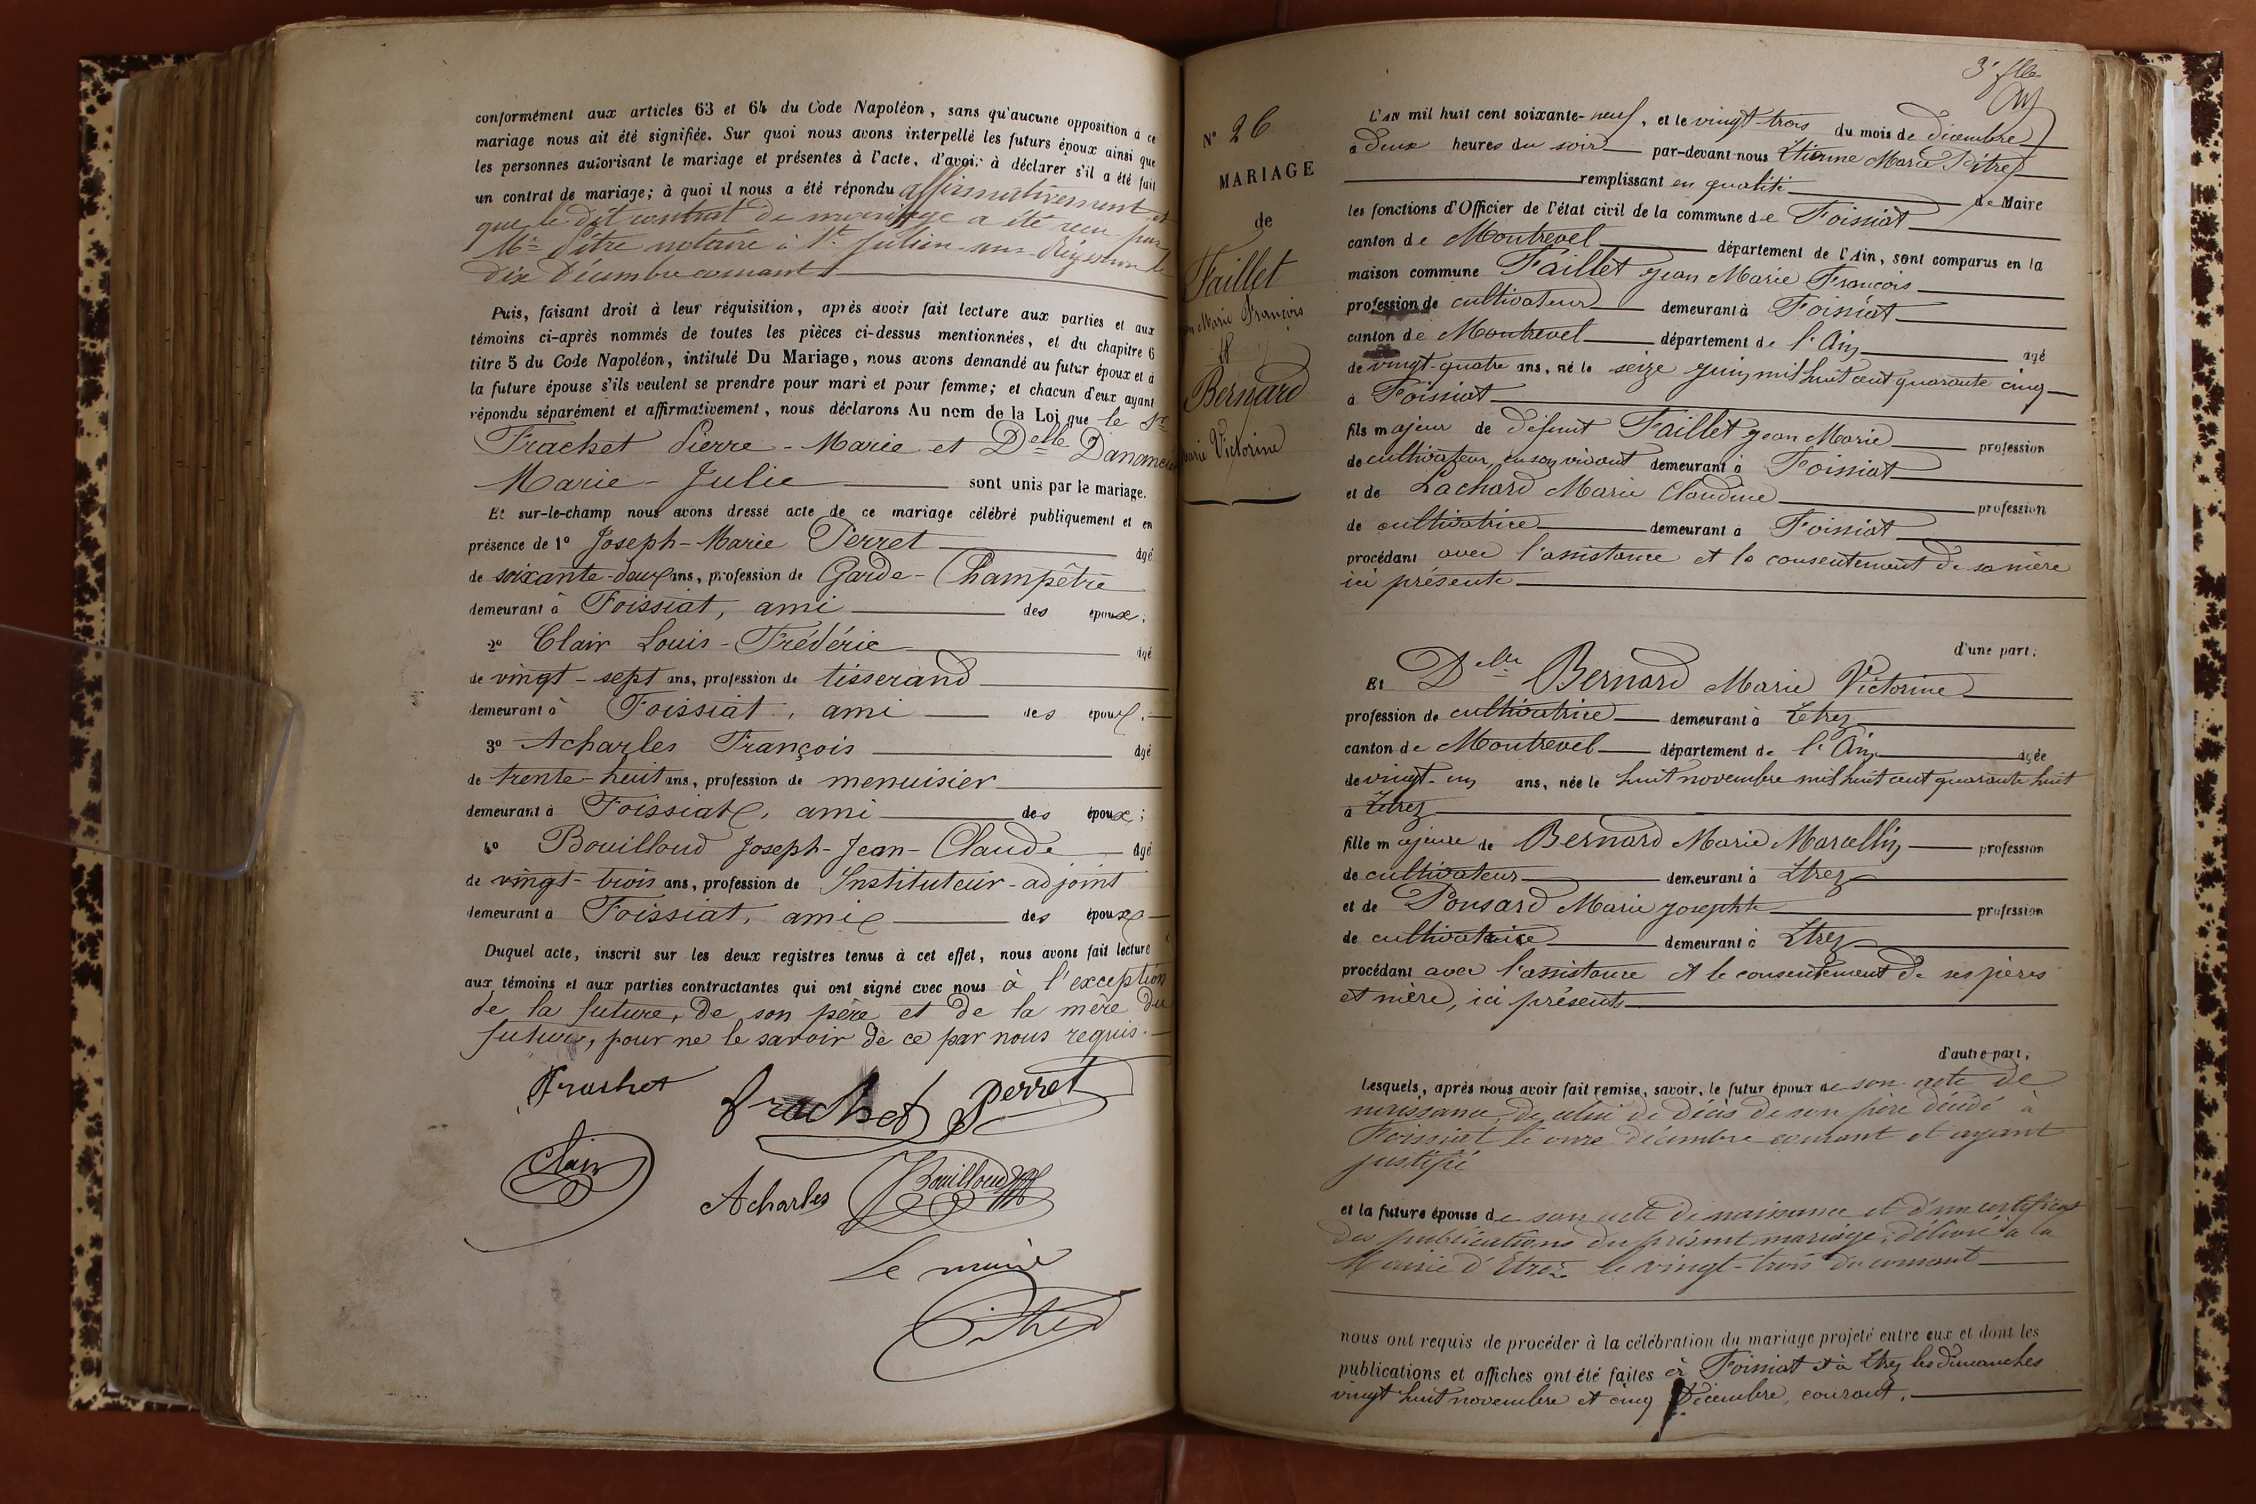 conformément aux articles 63 et 64 du Code Napoléon, sans qu'aucune opposition à ce
mariage nous ait été signifiée. Sur quoi nous avons interpellé les futurs époux ainsi que
les personnes autorisant le mariage et présentes à l'acte, d'avoir à déclarer s'il a été fait
un contrat de mariage; à quoi il nous a été répondu affirmativement et
que le dit contrat de mariage a été reçu par
Me Pitre notaire à St Julien-sur-Reyssouze le
dix Décembre courant
Puis, faisant droit à leur réquisition, après avoir fait lecture aux parties et aux
témoins ci-après nommés de toutes les pièces ci-dessus mentionnées, et du chapitre 6
titre 5 du Code Napoléon, intitulé Du Mariage, nous avons demandé au futur époux et à
la future épouse s'ils veulent se prendre pour mari et pour femme; et chacun d'eux ayant
répondu séparément et affirmativement, nous déclarons Au nom de la Loi que le Sr
Frachet Pierre-Marie et Delle
Marie-Julie sont unis par le mariage.
Et sur-le-champ nous avons dressé acte de ce mariage célébré publiquement et en
présence de 1° Joseph-Marie Perret âgé
de soixante-deux ans, profession de Garde-Champêtre
demeurant à Foissiat, ami des époux;
2° Clair Louis-Frédéric âgé
de vingt-sept ans, profession de tisserand
demeurant à Foissiat, ami des époux;
3° Acharles François âgé
de trente-huit ans, profession de menuisier
demeurant à Foissiat, ami des époux;
4° Bouilloud Joseph-Jean-Claude âgé
de vingt-trois ans, profession de Instituteur-adjoint
demeurant à Foissiat, ami des époux
Duquel acte, inscrit sur les deux registres tenus à cet effet, nous avons fait lecture
aux témoins et aux parties contractantes qui ont signé avec nous à l'exception
de la future, de son père et de la mère du
futur, pour ne le savoir de ce par nous requis.
Frachet frachet Perret
Clair Acharles Bouilloud
Le maire
Pitre
N° 26
MARIAGE
de
Faillet
Marie François
&
Bernard
Marie Victorine
3e flle
L'AN mil huit cent soixante-neuf, et le vingt-trois du mois de décembre
à deux heures du soir par-devant nous Etienne Marie Pitre
remplissant en qualité de Maire
les fonctions d'Officier de l'état civil de la commune de Foissiat
canton de Montrevel département de l'Ain, sont comparus en la
maison commune Faillet Jean Marie François
profession de cultivateur demeurant à Foissiat
canton de Montrevel département de l'Ain âgé
de vingt-quatre ans, né le seize juin mil huit cent quarante cinq
à Foissiat
fils majeur de défunt Faillet Jean Marie profession
de cultivateur en son vivant demeurant à Foissiat
et de Lachard Marie Claudine profession
de cultivatrice demeurant à Foissiat
procédant avec l'assistance et le consentement de sa mère
ici présente
d'une part;
Et Delle Bernard Marie Victorine
profession de cultivatrice demeurant à Etrez
canton de Montrevel département de l'Ain âgée
de vingt-un ans, née le huit novembre mil huit cent quarante huit
à Etrez
fille majeure de Bernard Marie Marcellin profession
de cultivateur demeurant à Etrez
et de Ponsard Marie Josephte profession
de cultivatrice demeurant à Etrez
procédant avec l'assistance et le consentement de ses pères
et mère, ici présents
d'autre part;
Lesquels, après nous avoir fait remise, savoir, le futur époux de son acte de
naissance, de celui de décès de son père décédé à
Foissiat le onze décembre courant et ayant
justifié
et la future épouse de son acte de naissance et d'un certificat
des publications du présent mariage, délivré à la
Mairie d'Etrez le vingt-trois du courant
nous ont requis de procéder à la célébration du mariage projeté entre eux et dont les
publications et affiches ont été faites à Foissiat et à Etrez les dimanches
vingt huit novembre et cinq Décembre, courant.